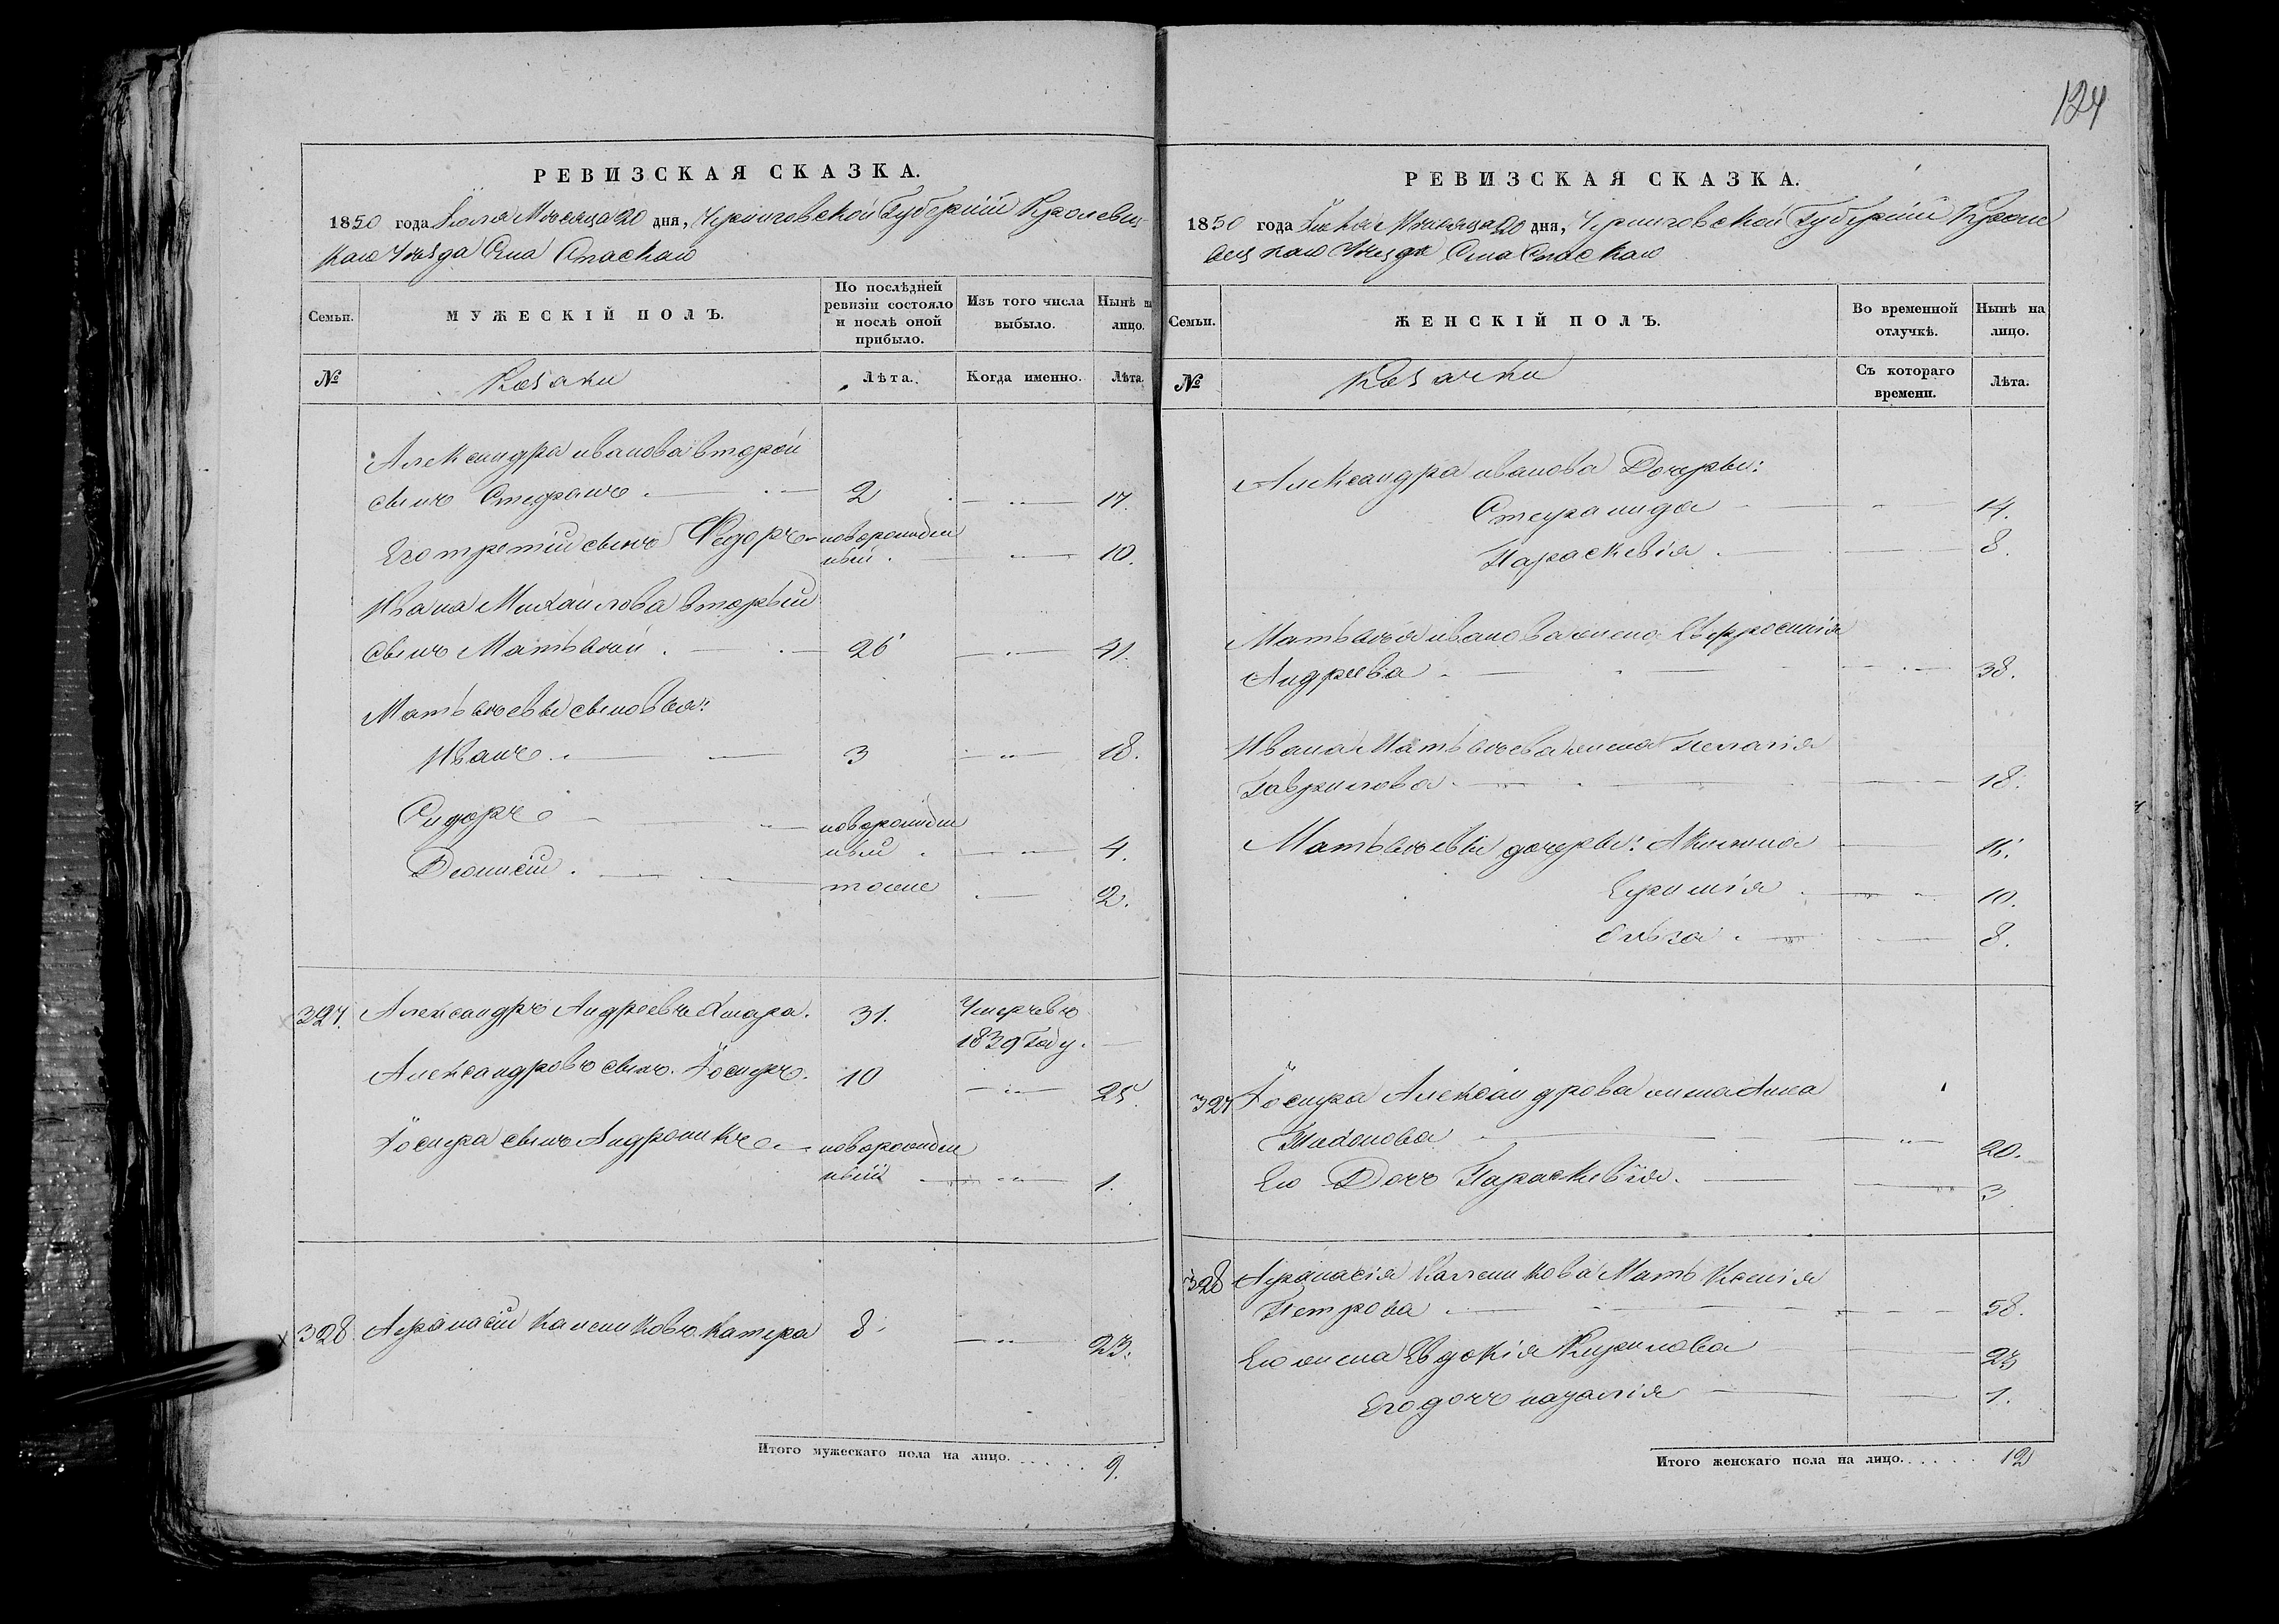 РЕВИЗСКАЯ СКАЗКА.
1850 года Июля Месяца 20 дня, Черниговской Губернiи Кролевец
каго Уѣзда Села Спаскаго
Семьи.
МУЖЕСКІЙ ПОЛЪ.
По послѣдней
ревизіи состояло
и послѣ оной
прибыло.
Изъ того числа
выбыло.
Нынѣ на
лицо.
№
Козаки
Лѣта.
Когда именно.
Лѣта
Александра иванова второй
сынъ Стефанъ 2 17.
Его третiй сынъ Федоръ новорожден
ный 10.
Ивана Михайлова вторый
сынъ Матвѣй 26 41.
Матвѣевы сыновья:
Иванъ 3 18.
Сидоръ новорожден
ный 4.
Дiонисiй тоже 2.
327. Александръ Андреевъ Хмара. 31. Умеръ въ
1839 году.
Александровъ сынъ Іосифъ. 10 25.
Іосифа сынъ Андроникъ новорожден
ный 1.
328 Афанасiй Калениковъ Катера 8 23.
Итого мужескаго пола на лицо. 9.
124
РЕВИЗСКАЯ СКАЗКА.
1850 года Июля Месяца 20 дня, Черниговской Губернiи Кроле
вецкаго Уѣзда Села Спаскаго
Семьи.
ЖЕНСКІЙ ПОЛЪ.
Во временной
отлучкѣ.
Нынѣ на
лицо.
№
Козачки
Съ котораго
времени.
Лѣта.
Александра иванова Дочеры:
Стефанида 14.
Параскевiя 8.
Матвѣя иванова жена Евфросинiя
Андреева 38.
Ивана Матвѣева жена Пелагiя
Гаврилова 18.
Матвѣевы дочеры: Акилина
Ефимiя 10.
8.
327 Іосифа Александрова жена Анна
Тихонова 20.
Его Дочъ Параскевiя. 3
328 Афанасiя Каленикова Мать Ксенiя
Петрова 58.
Его жена Евдокiя Кирилова 23
Его дочъ 1.
Итого женскаго пола на лицо. 12